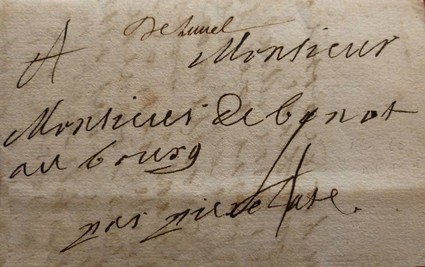 De Lunel
A Monsieur
Monsieur Debenot
au bourg
par pierrelate.